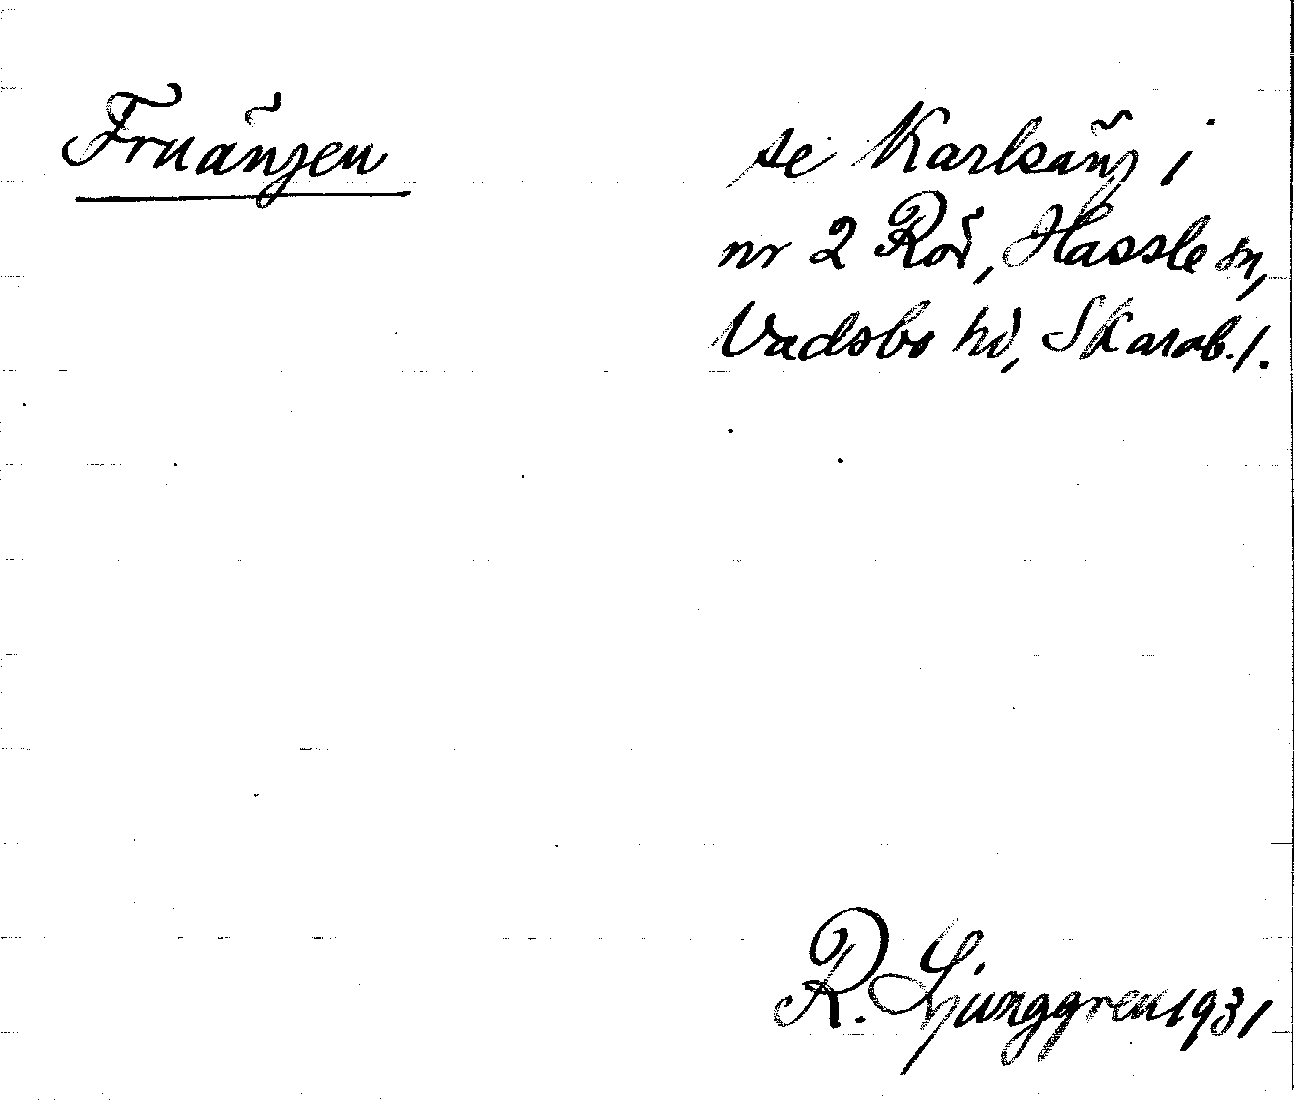 Fruängen
se Karlsäng i
nr 2 Röd, Hassle sn,
Vadsbo hd, Skarab. l.
R. Ljunggren 1931